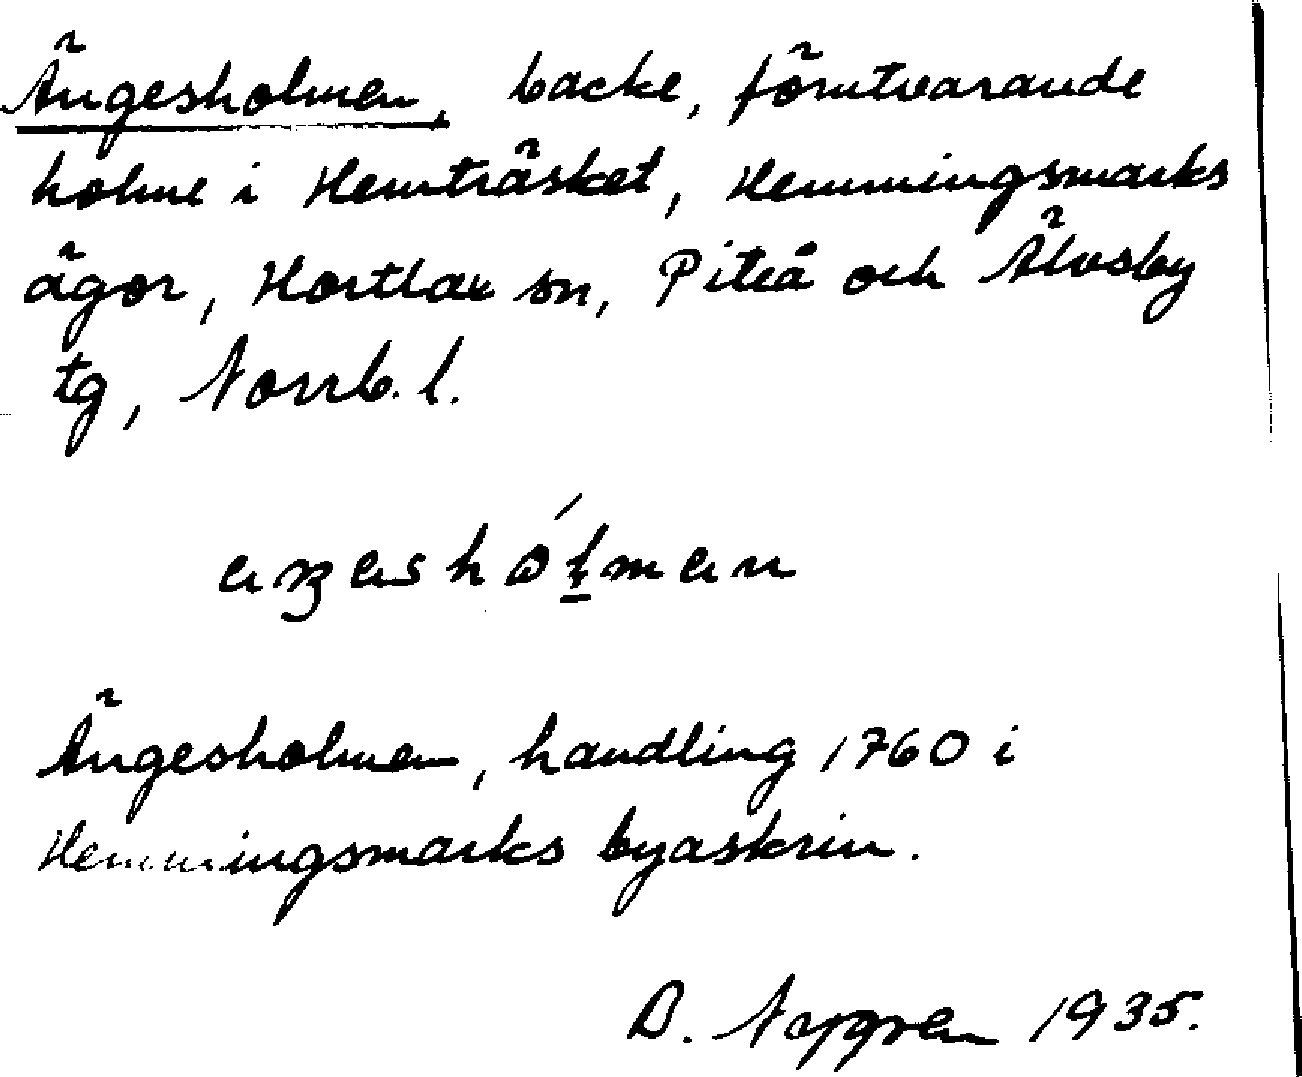 Ängesholmen, backe, förutvarande
holme i Hemträsket, Hemmingsmarks
ägor, Hortlax sn, Piteå och Älvsby
tg, Norrb. l.
Ängesholmen, handling 1760 i
Hemmingsmarks byaskrin.
D. Nygren 1935.